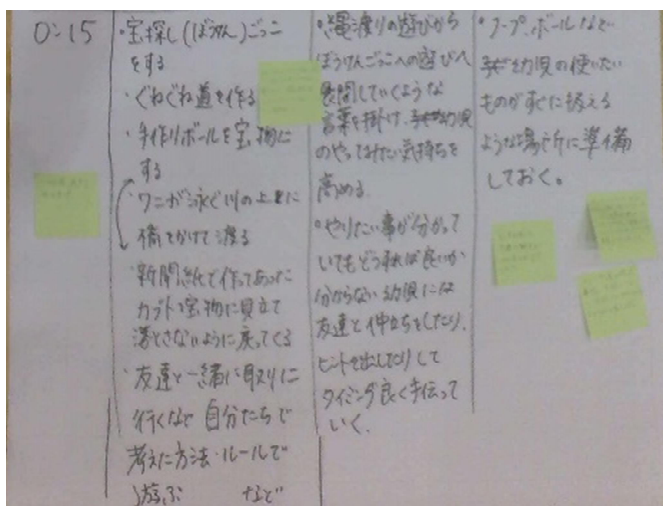 0:15
・宝探し(ぼうけん)ごっこ
をする
・くねくね道を作る
・手作りボールを宝物に
する
・ワニが泳ぐ川の上に
橋をかけて渡る
・新聞紙で作ってあった
カブトを宝物に見立て
落とさないように戻ってくる
・友達と一緒に取りに
行くなど自分たちで
考えた方法・ルールで
遊ぶ など
・縄渡りの遊びから
ぼうけんごっこへの遊びへ
展開していくような
言葉を掛け、幼児
のやってみたい気持ちを
高める。
・やりたい事が分かって
いてもどうすれば良いか
分からない幼児には
友達と仲立ちをしたり、
ヒントを出したりして
タイミング良く手伝って
いく。
・フープ、ボールなど
幼児の使いたい
ものがすぐに扱える
ような場所に準備
しておく。